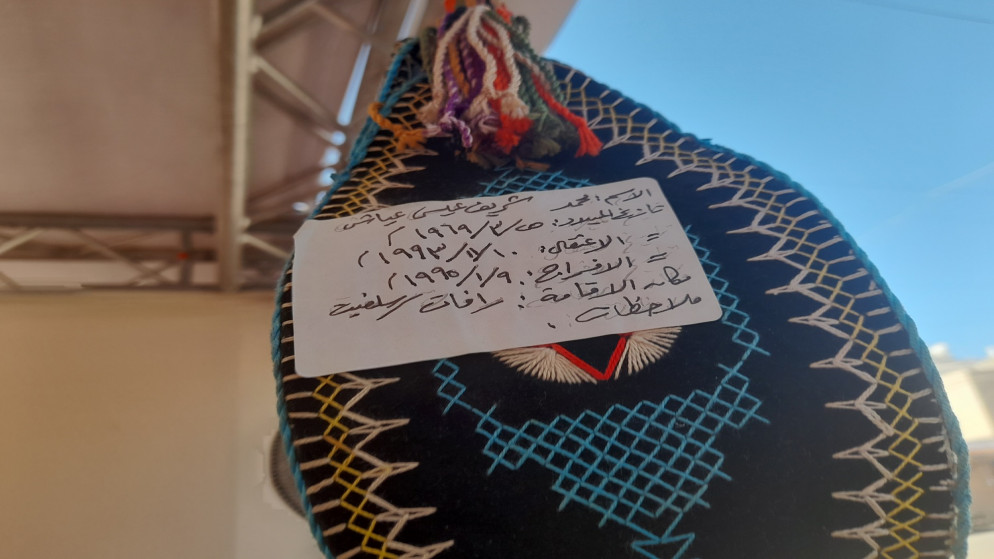 الاسم: محمد شريف عيسى عياش
تاريخ الميلاد: ١٩٦٩/٣/
= الاعتقال: ١٩٩٣/١/١٠
= الافراج: ١٩٩٥/١/٩
مكان الاقامة: رافات / سلفيت
ملاحظات: